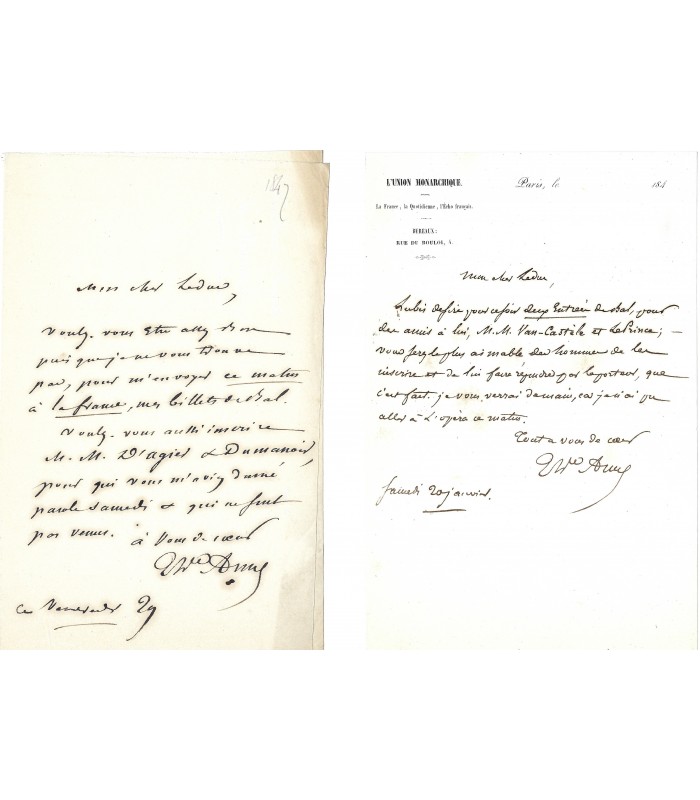 1847
Mon cher Leduc,
Voulez-vous être assez bon
puisque je ne vous donne
pas, pour m'envoyer ce matin
à la france, mes billets de bal.
Voulez-vous aussi inscrire
M. M. D'agier & Dumanoir,
pour qui vous m'aviez donné
parole samedi & qui ne sont
pas venus. à vous de cœur
Thre Anne
ce Vendredi 29
L'UNION MONARCHIQUE.
Paris, le 184
La France, la Quotidienne, l'Écho français.
BUREAUX:
RUE DU BOULOI,
Mon cher Leduc,
Lubis desire pour ce soir deux Entrées de bal, pour
des amis à lui, M. M. Van-Castèle et LePrince;
vous serez le plus aimable des hommes de les
inscrire et de lui faire répondre par le porteur, que
c'est fait. je vous verrai demain, car je n'ai pu
aller à L'opéra ce matin.
Tout a vous de cœur
Thre Anne
Samedi janvier.